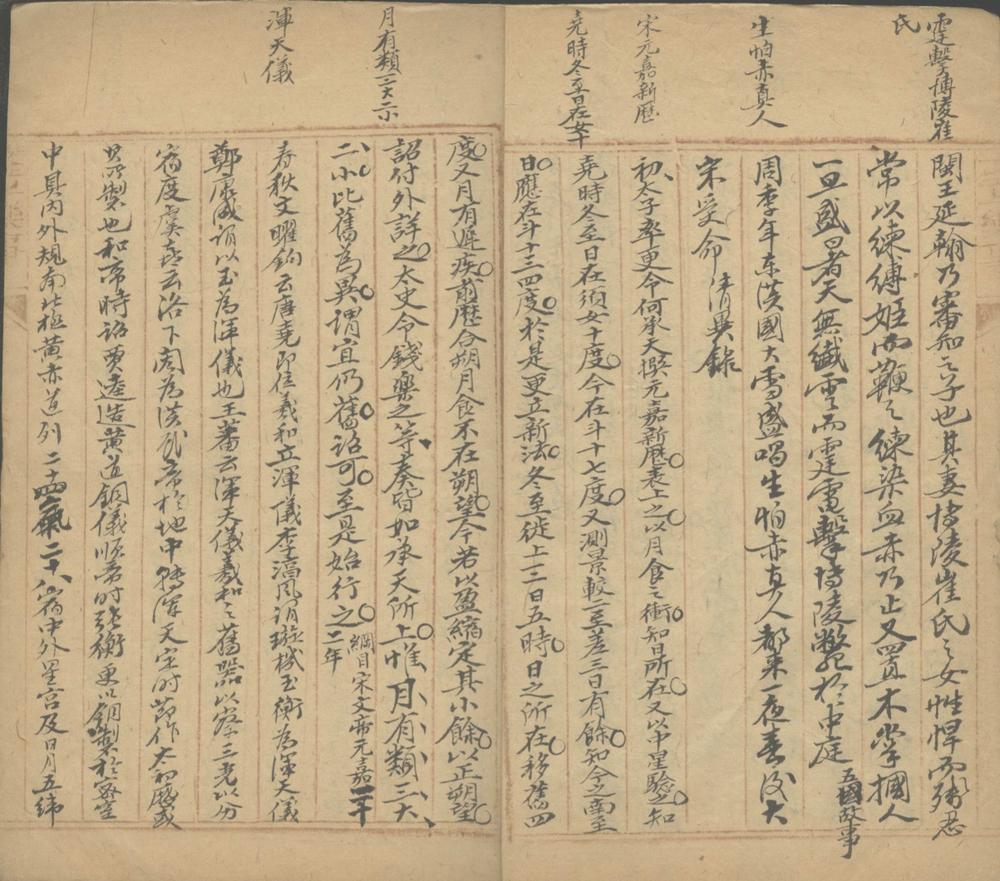 霆擊博陵崔
氏
生怕赤真人
宋元嘉新曆
堯時冬至日在女十
閩王延翰乃審知之子也其妻博陵崔氏之女性悍而殘忍
常以練縛姬而鞭之練染血赤乃止又置木掌摑人
一旦盛暑天無纖雲而霆電擊博陵斃於中庭
五國故事
周季年東漢國大雪盛唱生怕赤真人都來一夜春後大
宋受命 清異錄
初太子率更令何承天撰元嘉新曆表上之以月食之衝知日所在又以中星驗之知
堯時冬至日在須女十度今在斗十七度又測景較二至差三日有餘知今之南至
日應在斗十三四度於是更立新法冬至徙上三日五時日之所在移舊四
月有頻三大二小
渾天儀
度又月有遲疾前曆合朔月食不在朔望今若以盈縮定其小餘以正朔望
詔付外詳之太史令錢樂之等奏皆如承天所上惟月有頻三大
二小比舊為異謂宜仍舊詔可至是始行之
綱目宋文帝元嘉二十
二年
春秋文曜鈎云唐堯即位羲和立渾儀李淳風謂璇璣玉衡為渾天儀
鄭康成謂以玉為渾儀也王蕃云渾天儀羲和之舊器以察三光以分
宿度虞喜云洛下閎為漢武帝於地中轉渾天定時節作太初曆或
其所製也和帝時詔賈逵造黃道銅儀順帝時張衡更以銅製於密室
中具內外規南北極黃赤道列二十四氣二十八宿中外星官及日月五緯